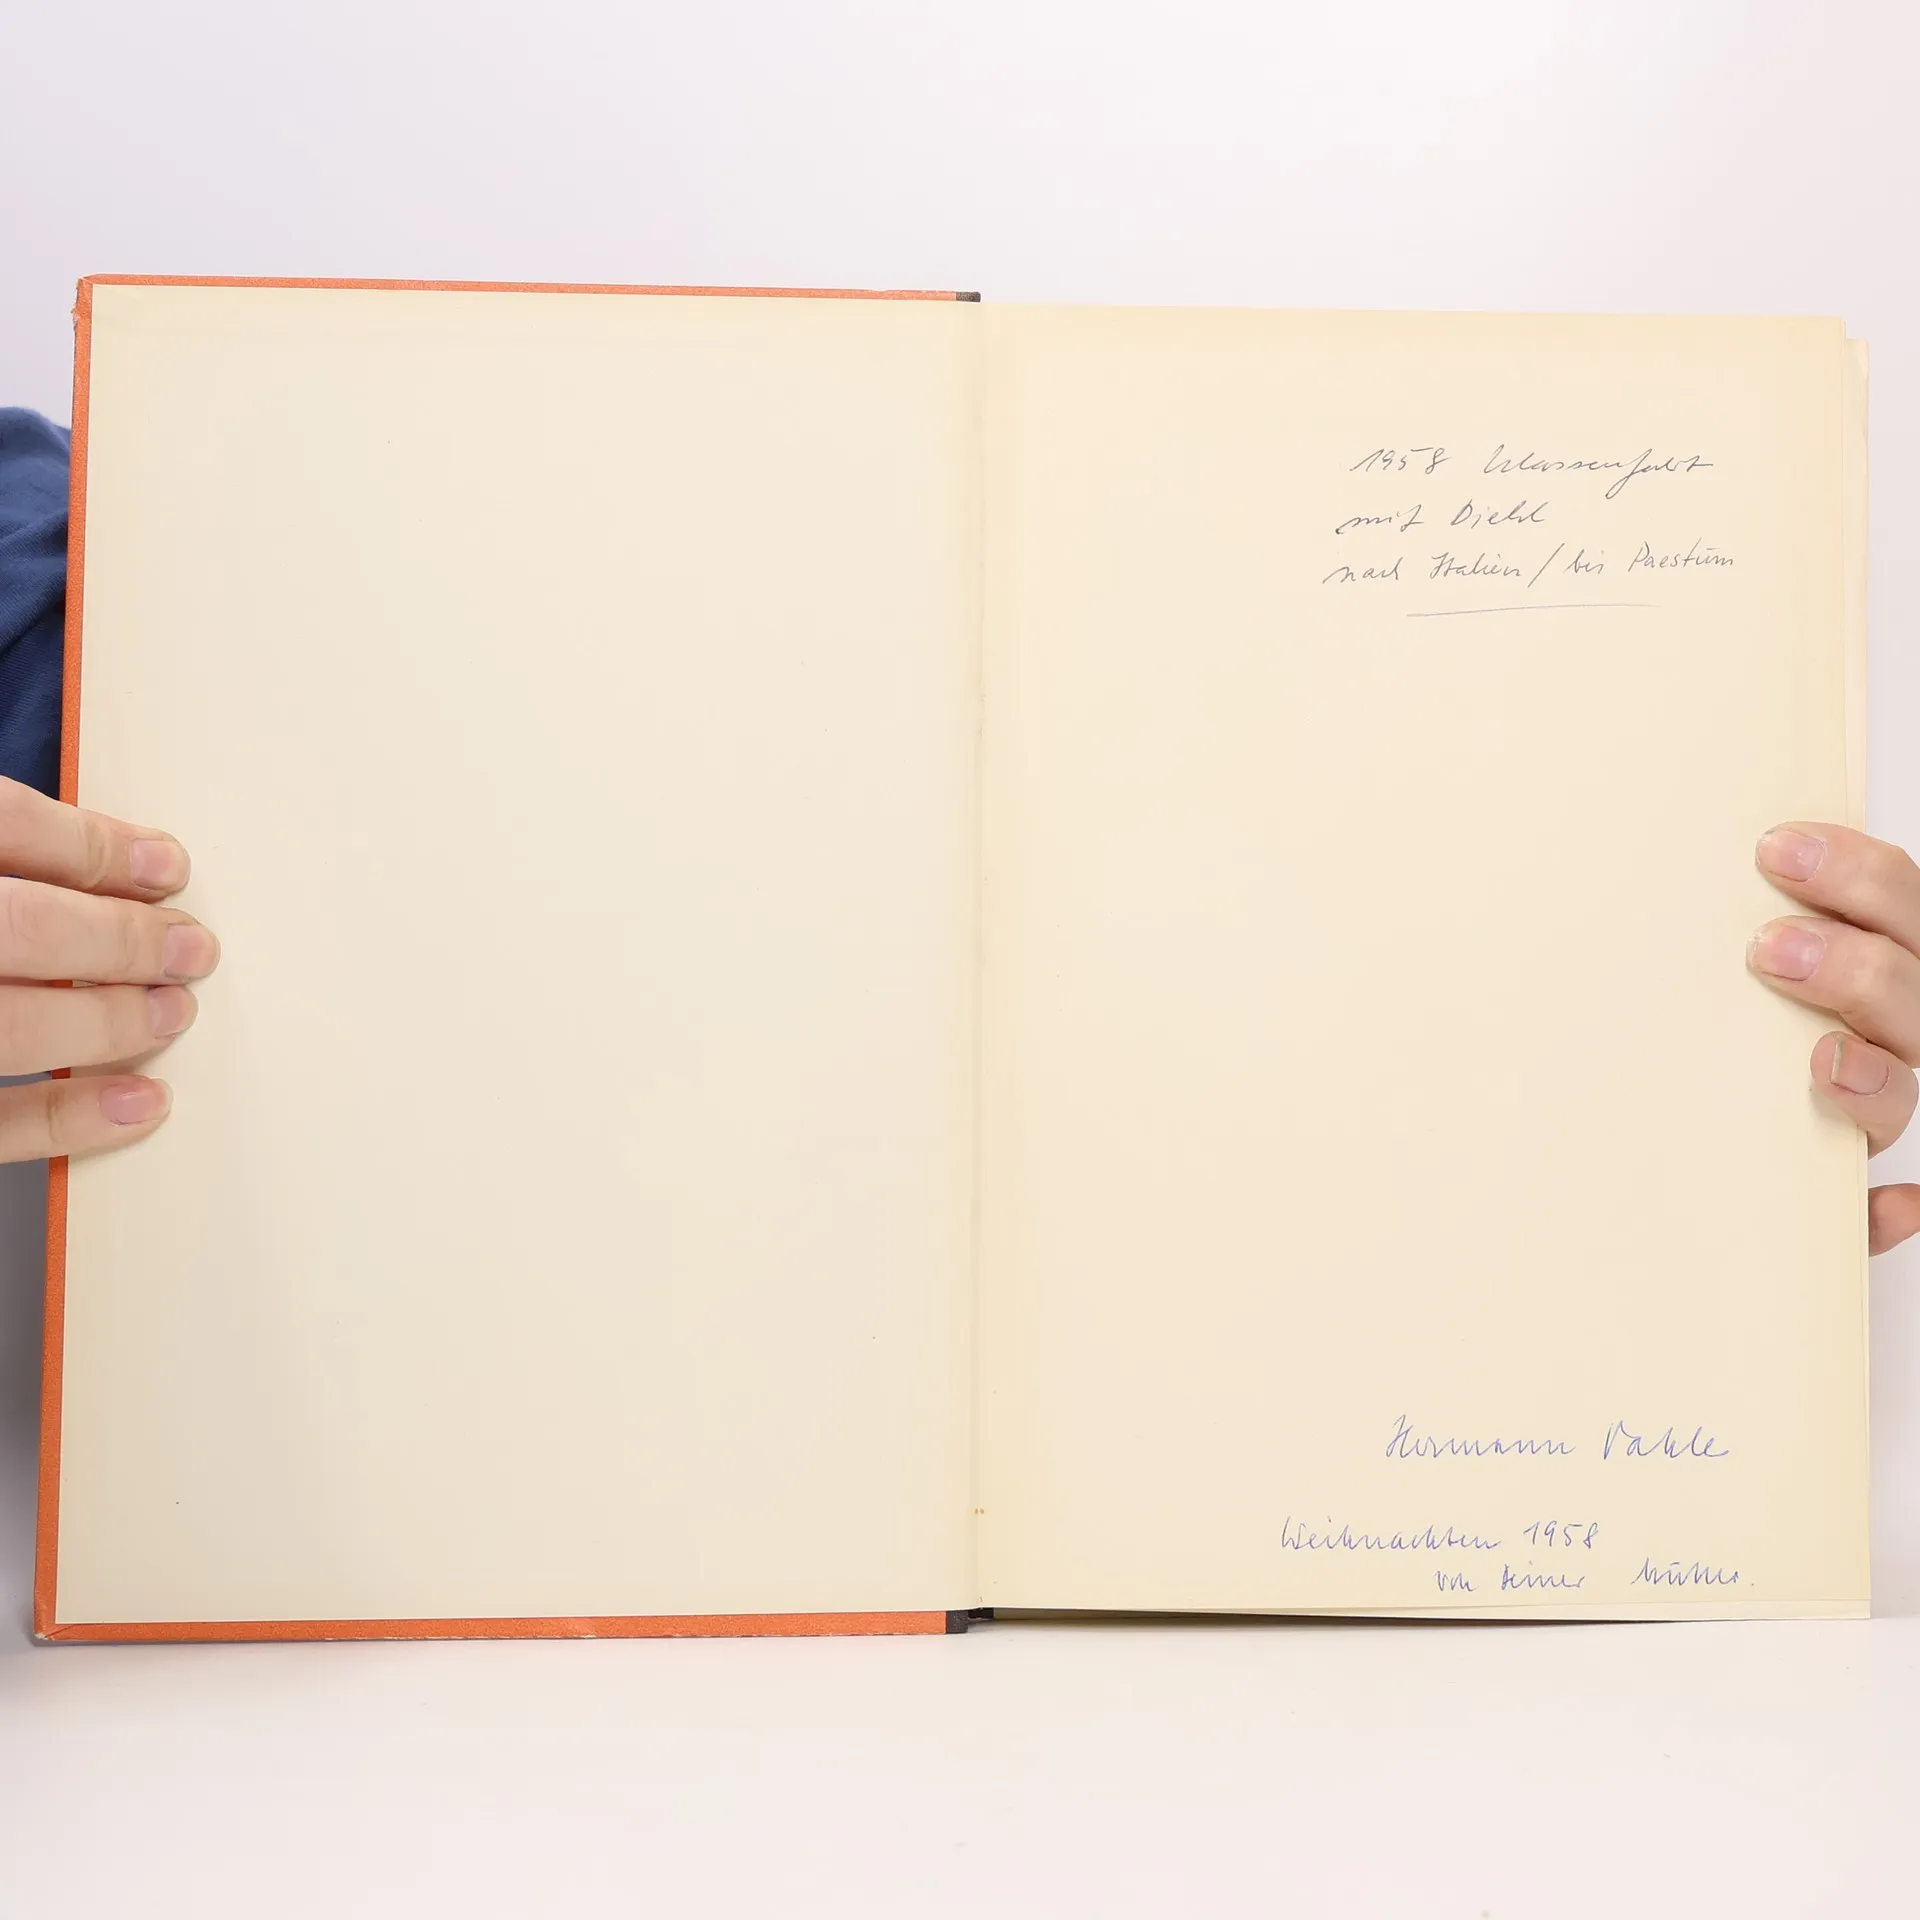 1958 Klassenfahrt
mit Diehl
nach Italien / bis Paestum
Hermann Pahle
Weihnachten 1958
von Deiner Mutter.